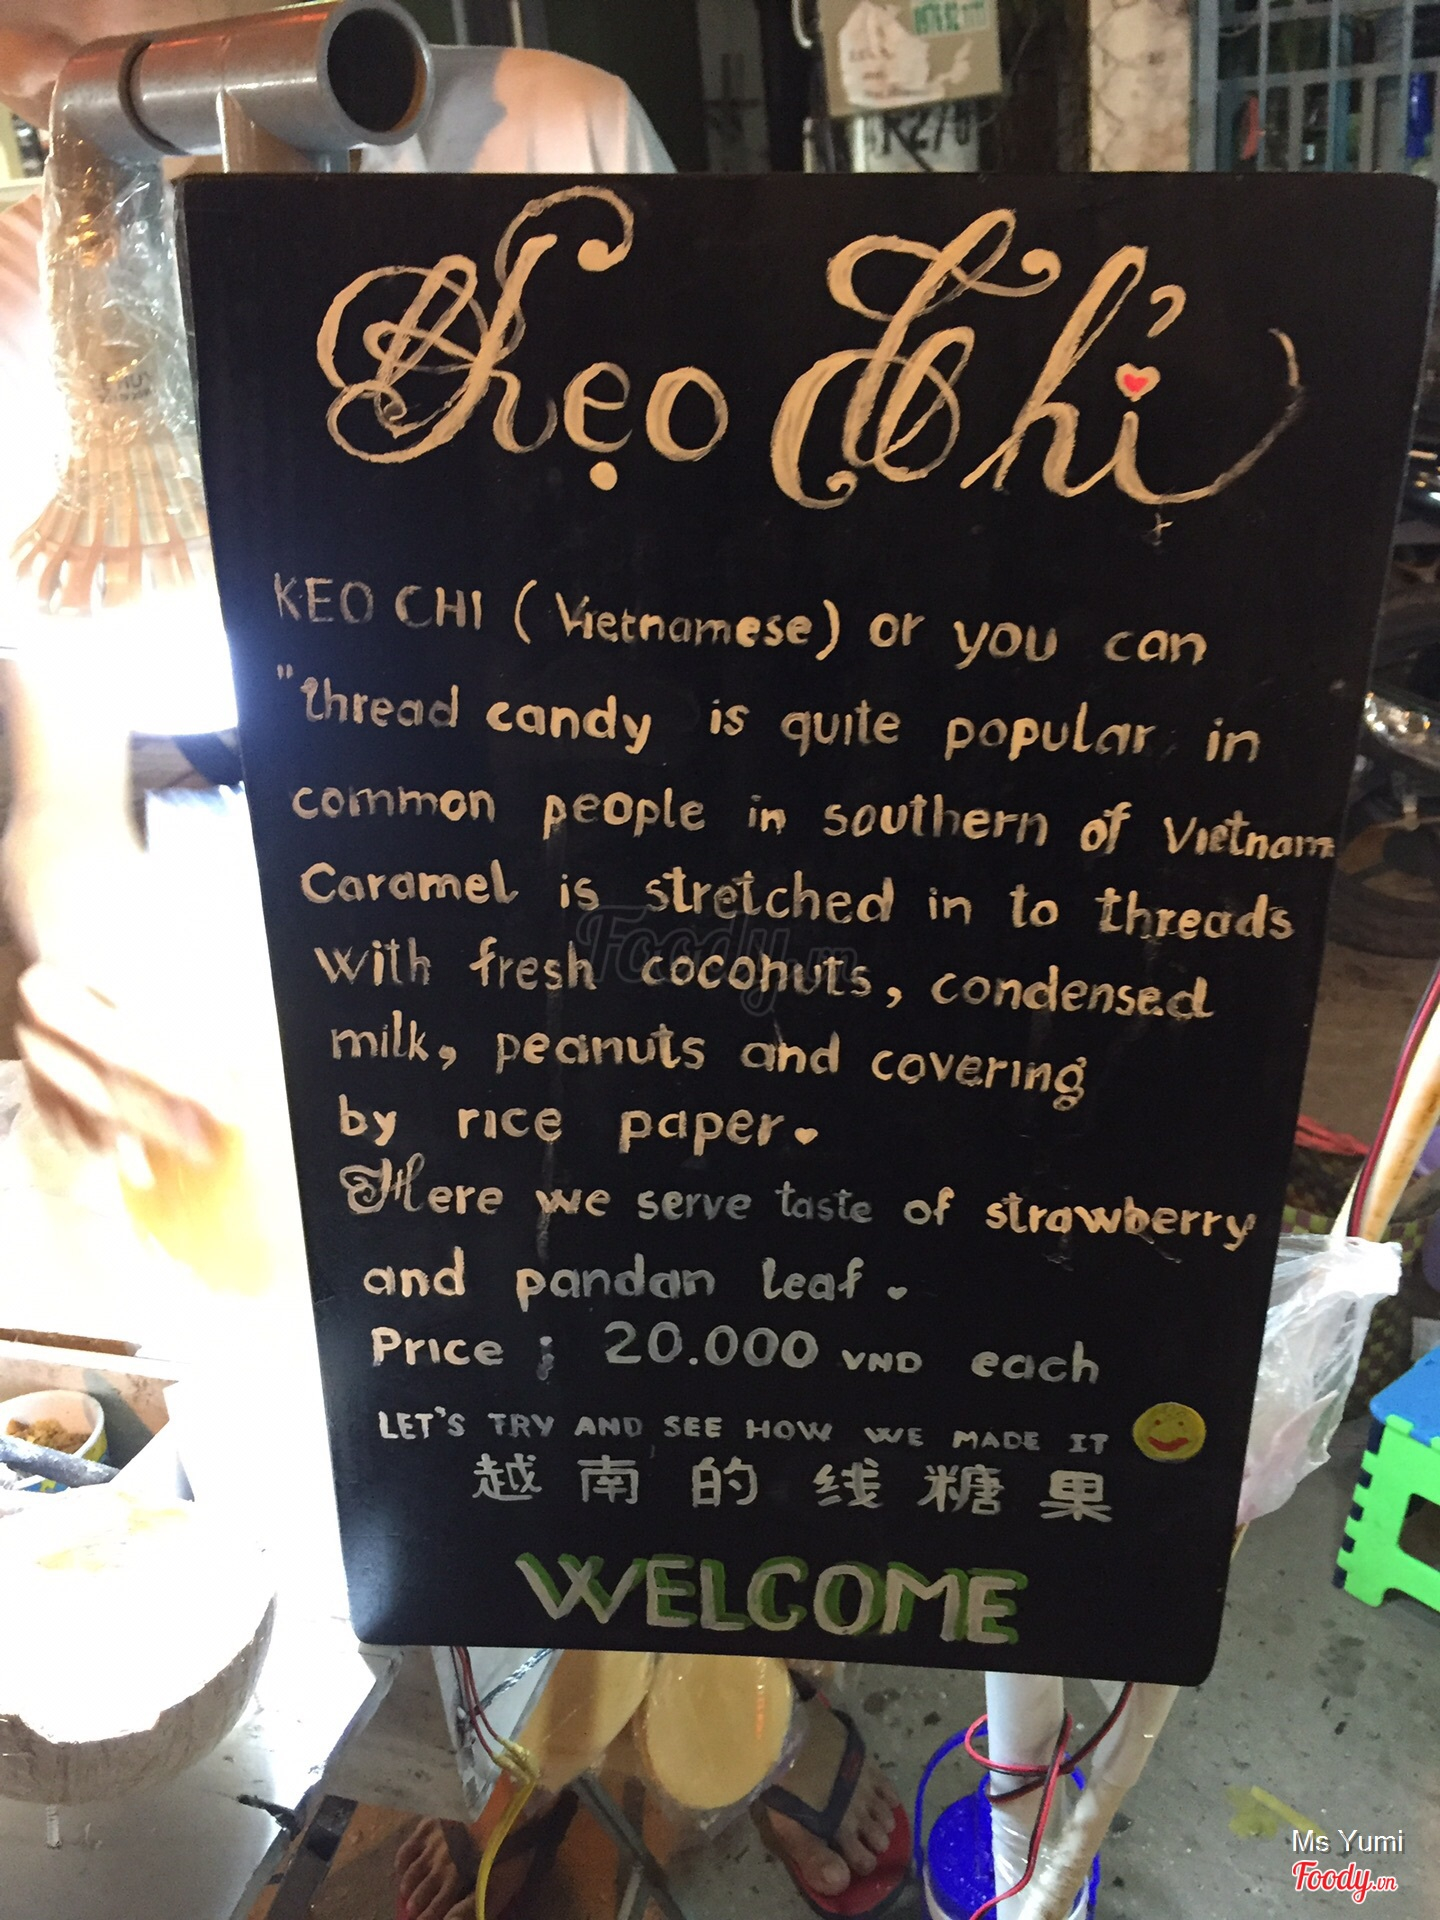 0976.92.7777
K270
Kẹo Chỉ
KEO CHI (Vietnamese) or you can
"thread candy is quite popular in
common people in southern of Vietnam
Caramel is stretched in to threads
with fresh coconuts, condensed
milk, peanuts and covering
by rice paper.
Here we serve taste of strawberry
and pandan leaf.
Price ; 20.000 VND each
LET'S TRY AND SEE HOW WE MADE IT
越南的线糖果
WELCOME
Foody.vn
Ms Yumi
Foody.vn